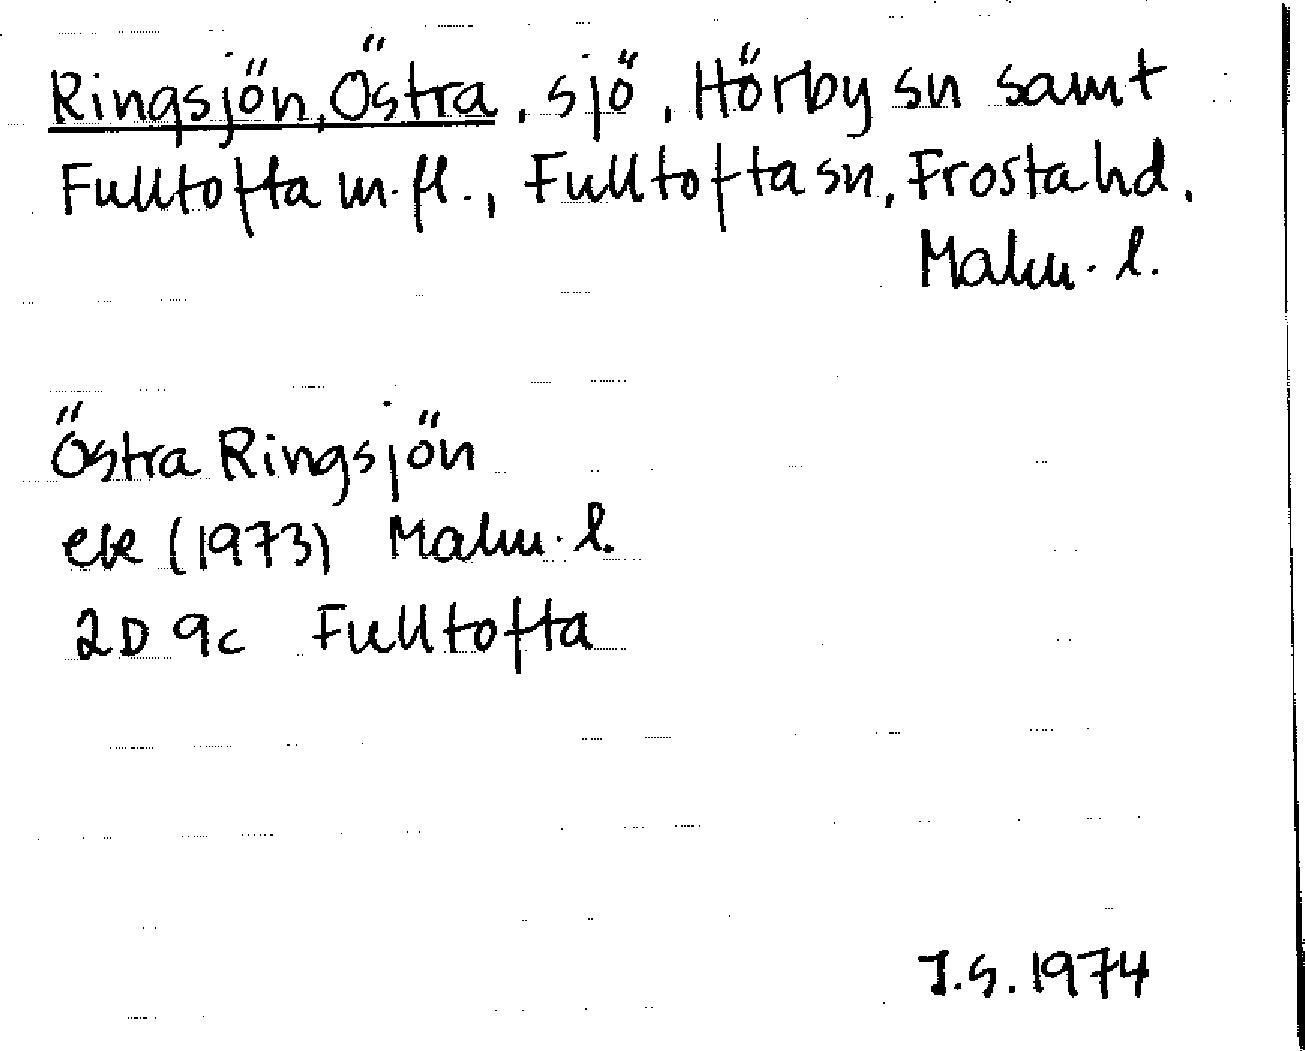 Ringsjön, Östra, sjö, Hörby sn samt
Fulltofta m.fl., Fulltofta sn, Frosta hd,
Malm.l.
Östra Ringsjön
ek (1973) Malm.l.
2D 9c Fulltofta
J.S. 1974